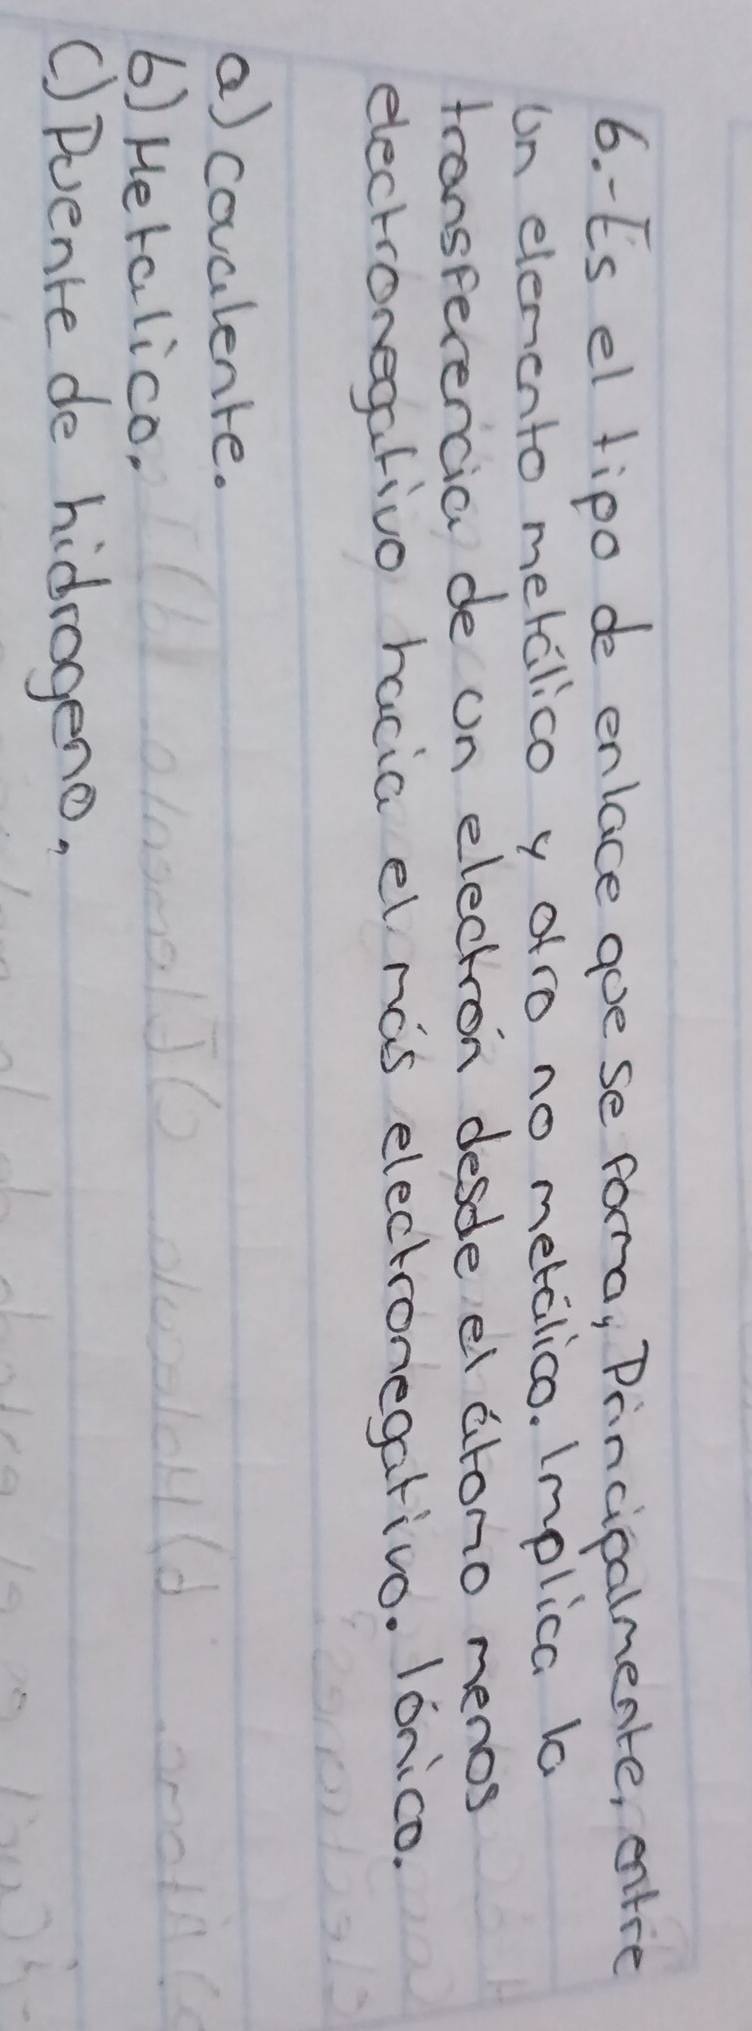 6.- Es el tipo de enlace que se forma, Principalmente, entre
un elemento metálico y otro no metálico. Implica la
transferencia de un electrón desde el átomo menos
electronegativo hacia el más electronegativo. Iónico.
a) covalente.
b) Metalico.
c) Puente de hidrogeno.